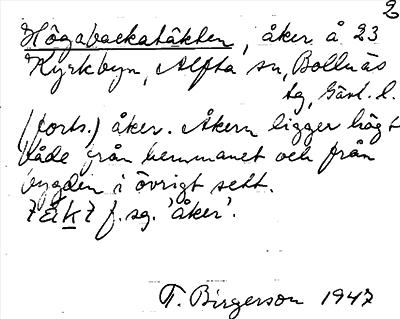 2
Högabackatäkten, åker å 23
Kyrkbyn, Alfta sn, Bollnäs
tg, Gävl. l.
(forts.) åker. Åkern ligger högt
både från hemmanet och från
bygden i övrigt sett.
f. sg. 'åker'.
T. Birgerson 1947